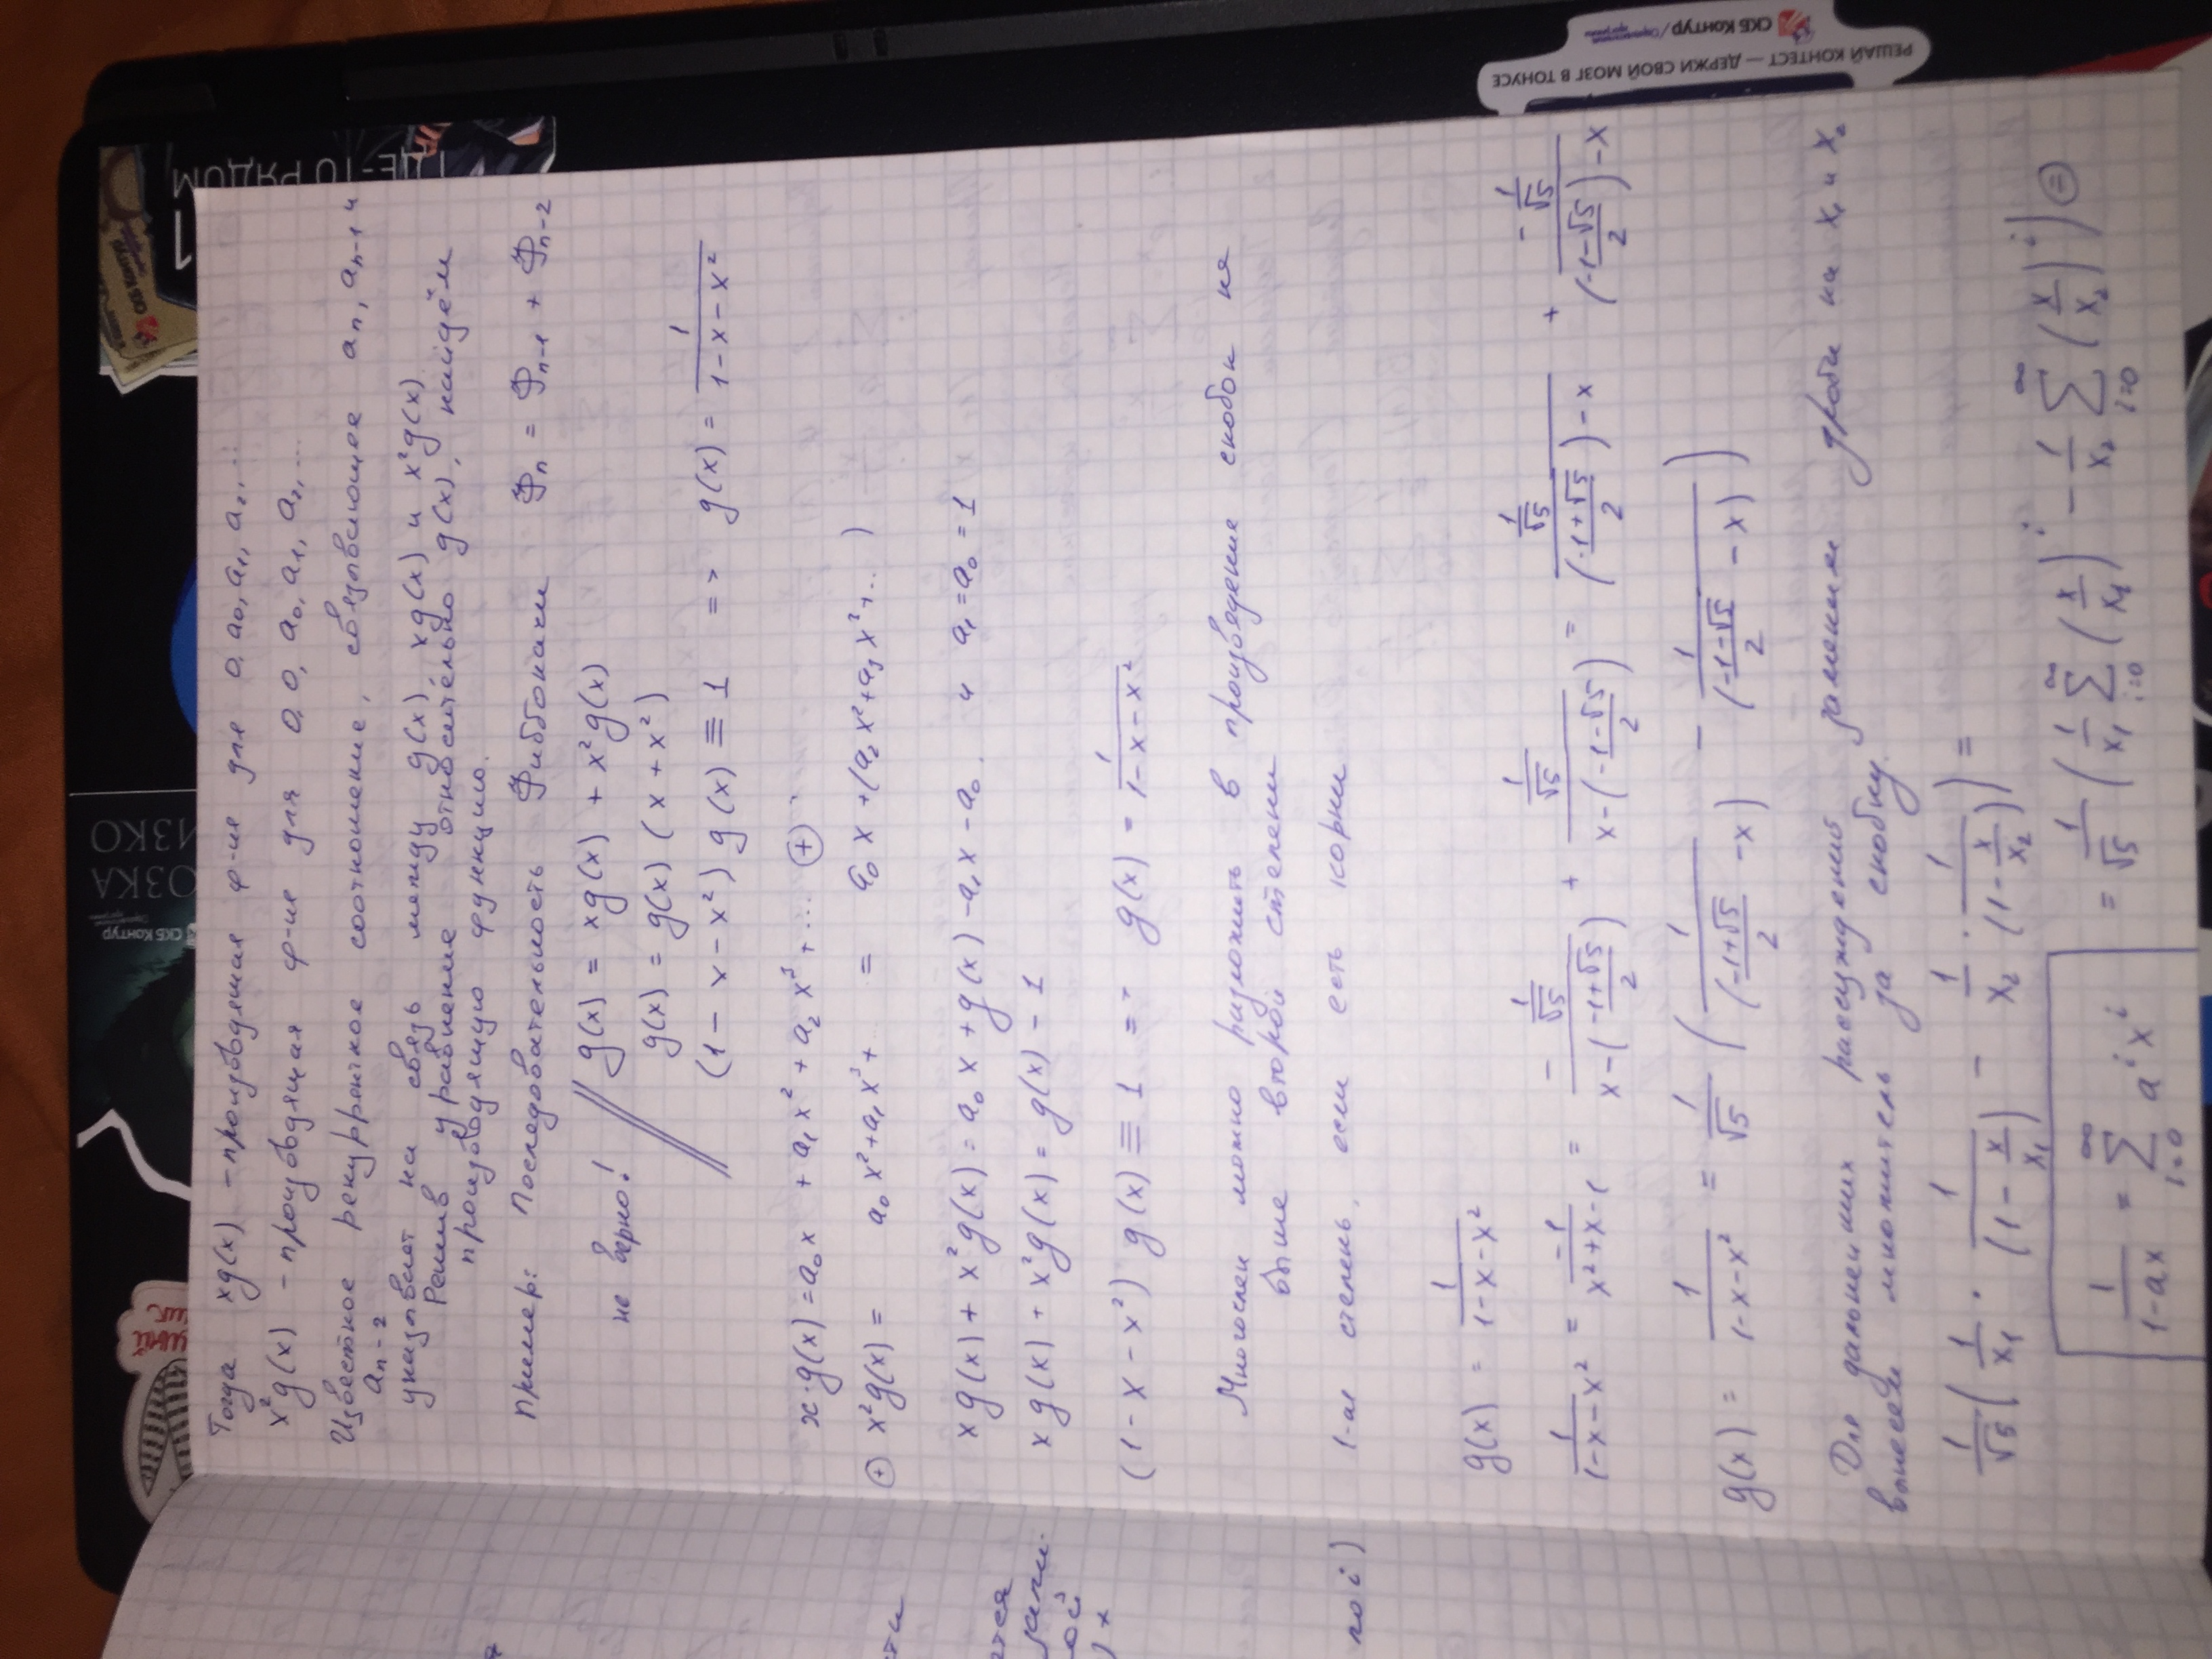 СКБ Контур
ОЗКА
ИЗКО
СКБ Контур
1
ГДЕ-ТО РЯДОМ
Тогда xg(x) – производящая ф-ия для 0, a₀, a₁, a₂, ...
x²g(x) – производящая ф-ия для 0, 0, a₀, a₁, a₂, ...
Известное рекуррентное соотношение, связывающее aₙ, aₙ₋₁ и
aₙ₋₂
указывает на связь между g(x), xg(x) и x²g(x).
Решив уравнение относительно g(x), найдём
производящую функцию.
Пример: Последовательность Фиббоначи Фₙ = Фₙ₋₁ + Фₙ₋₂
не верно! // g(x) = xg(x) + x²g(x)
g(x) = g(x) (x + x²)
(1 – x – x²) g(x) ≡ 1 => g(x) = 1/(1–x–x²)
x·g(x) = a₀x + a₁x² + a₂x³ + ... ⊕
⊕ x²g(x) = a₀x² + a₁x³ + ... = a₀x + (a₂x² + a₃x³ + ...)
xg(x) + x²g(x) = a₀x + g(x) – a₁x – a₀. и a₁ = a₀ = 1
xg(x) + x²g(x) = g(x) – 1
(1 – x – x²) g(x) ≡ 1 => g(x) = 1/(1–x–x²)
Многочлен можно разложить в произведение скобок не
выше второй степени
1-ая степень, если есть корни
по i)
g(x) = 1/(1–x–x²)
1/(1–x–x²) = –1/(x²+x–1) = (–1/√5)/(x–((–1+√5)/2)) + (1/√5)/(x–((–1–√5)/2)) = (1/√5)/(((–1+√5)/2)–x) + (–1/√5)/(((–1–√5)/2)–x)
g(x) = 1/(1–x–x²) = 1/√5 (1/((–1+√5)/2 –x) – 1/((–1–√5)/2 –x))
Для дальнейших рассуждений заменим дроби на x₁ и x₂
вынесем множитель за скобку.
1/√5 (1/x₁ · 1/(1 – x/x₁) – 1/x₂ · 1/(1 – x/x₂)) =
1/(1–ax) = ∑_{i=0}^{∞} aⁱxⁱ
= 1/√5 (1/x₁ ∑_{i=0}^{∞} (x/x₁)ⁱ – 1/x₂ ∑_{i=0}^{∞} (x/x₂)ⁱ) ⊜
РЕШАЙ КОНТЕСТ — ДЕРЖИ СВОЙ МОЗГ В ТОНУСЕ
СКБ Контур